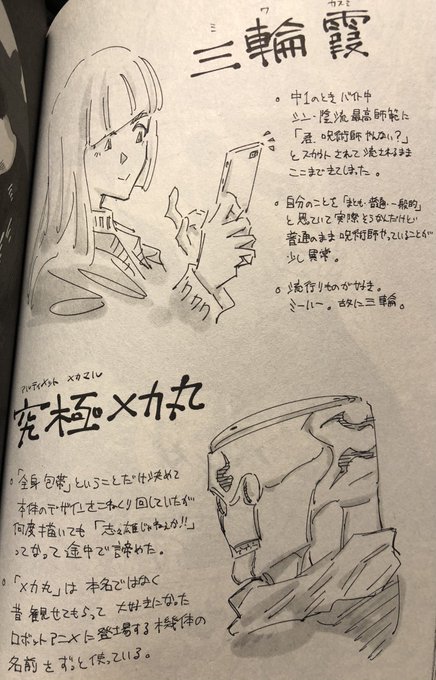 ミ ワ カスミ
三輪 霞
。中1のとき バイト中
シン・陰流 最高師範に
「君、呪術師やんない?」
とスカウトされて流されるまま
ここまできてしまった。
。自分のことを「まとも・普通・一般的」
と思っていて実際そうなんだけど
普通のまま呪術師やっていることが
少し異常。
。流行りものが好き。
ミーハー。故に三輪。
アルティメット メカマル
究極メカ丸
。「全身包帯」ということだけ決めて
本体のデザインをこねくり回していたが
何度描いても「志々雄じゃねえか!!」
ってなって途中で諦めた。
。「メカ丸」は本名ではなく
昔観せてもらって大好きになった
ロボットアニメに登場する機体の
名前をずっと使っている。